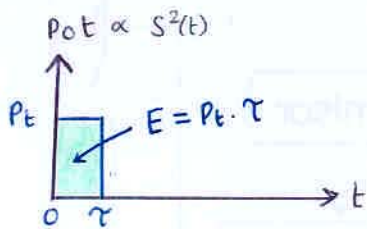 Pot ∝ S²(t)
Pt
E = Pt · τ
0 τ t